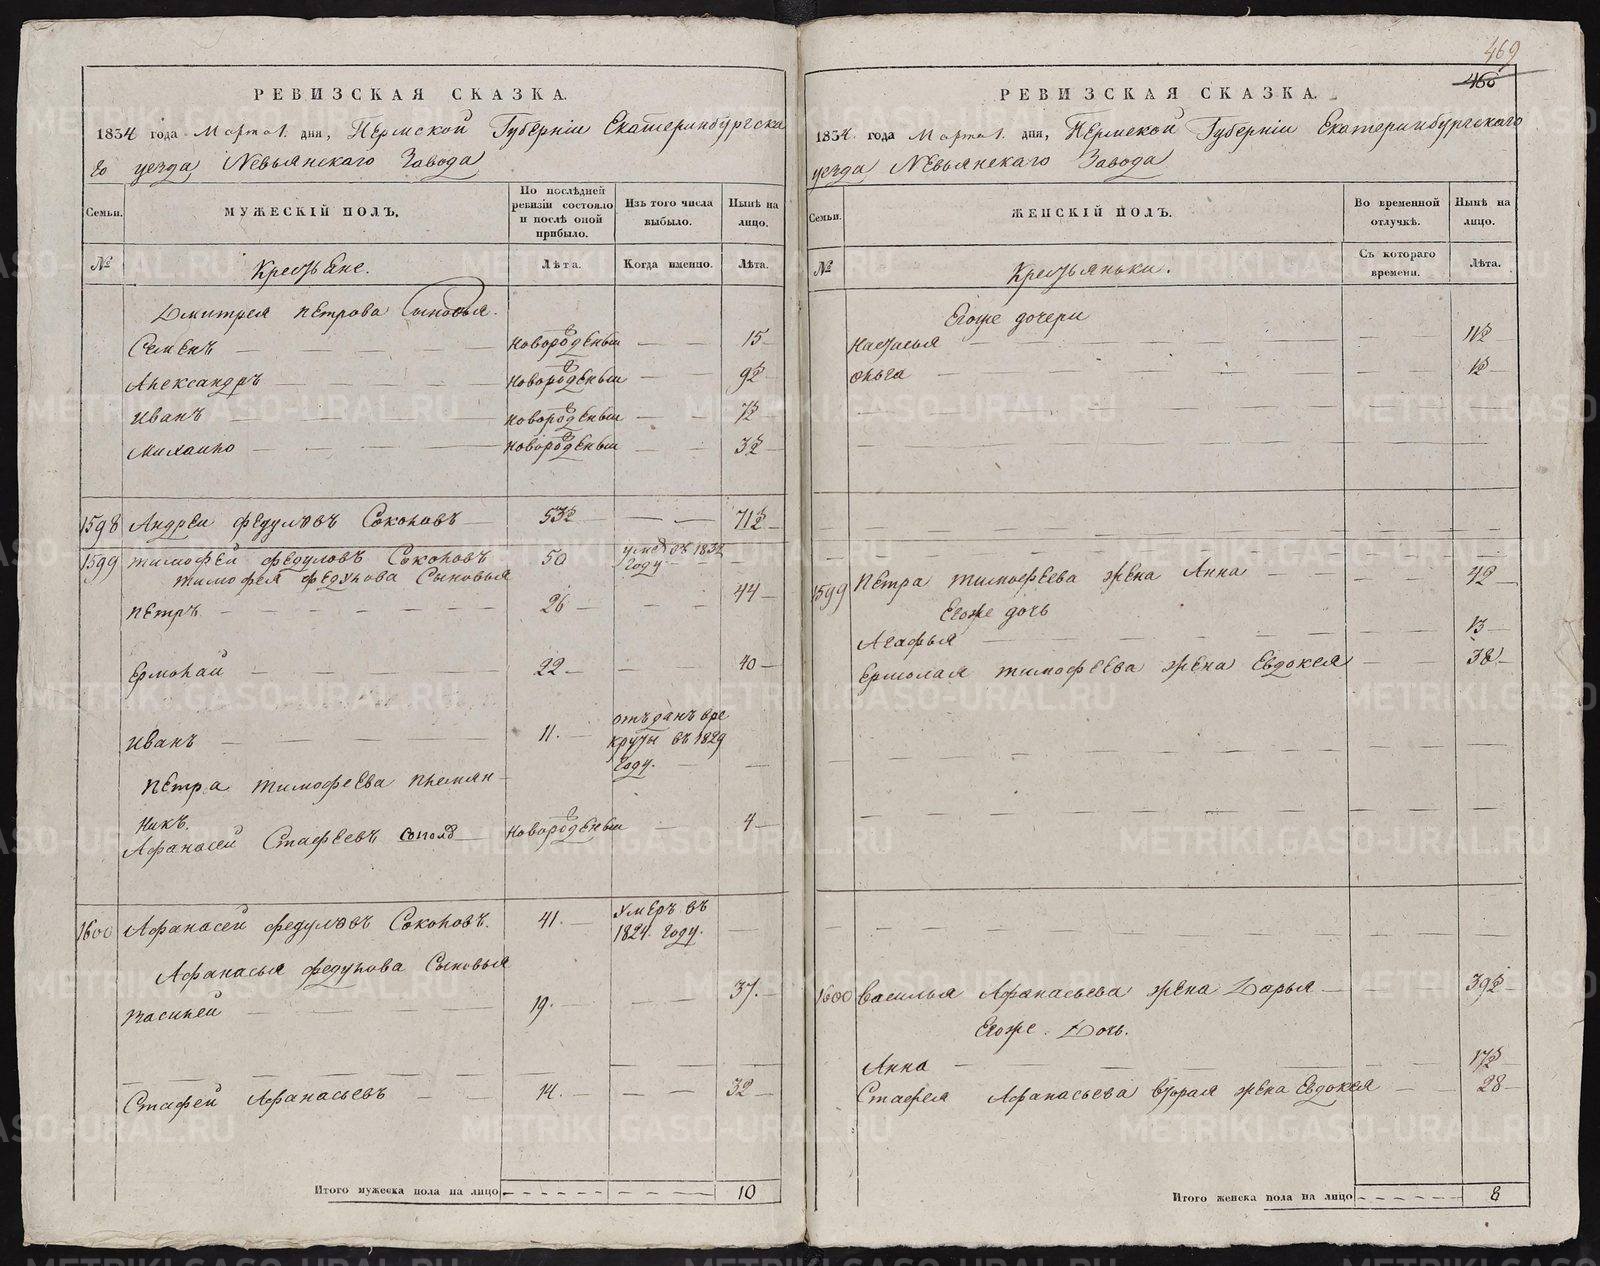 РЕВИЗСКАЯ СКАЗКА.
1834 года Марта 1. дня, Пермской Губернiи Екатеринбургска
го уезда Невьянскаго Завода
Семьи. МУЖЕСКIЙ ПОЛЪ. По послѣдней ревизiи состояло и послѣ оной прибыло. Изъ того числа выбыло. Нынѣ на лицо.
№ Крестьяне. Лѣта. Когда именно. Лѣта.
Дмитрея Петрова Сыновья.
Семенъ новорожденый 15
Александръ новорожденый 9½
Иванъ новорожденый 7½
Михаило новорожденый 3½
1598 Андреи Федуловъ Соколовъ 53½ 71½
1599 Тимофей Федуловъ Соколовъ 50 въ 1832 году
Тимофея Федулова Сыновья
Петръ 26 44
Ермолай 22 40
Иванъ 11. отъданъ вре
круты въ 1829
году.
Петра Тимофеева племян
никъ.
Афанасей Стафеевъ новорожденый 4
1600 Афанасей Федуловъ Соколовъ. 41. Умеръ въ
1824. году.
Афанасья Федулова Сыновья
Василей 19. 37.
Стафей Афанасьевъ 14. 32
Итого мужеска пола на лицо 10
469
460
РЕВИЗСКАЯ СКАЗКА.
1834 года Марта 1. дня, Пермской Губернiи Екатеринбургскаго
уезда Невьянскаго Завода
Семьи. ЖЕНСКIЙ ПОЛЪ. Во временной отлучкѣ. Нынѣ на лицо.
№ Крестьянки. Съ котораго времени. Лѣта.
Егоже дочери
Настасья 11½
Ольга 1½
1599 Петра Тимофеева жена Анна 42
Егоже дочь
Агафья 13
Ермолая Тимофеева жена Евдокея 38
1600 Василья Афанасьева жена Дарья 39½
Егоже. Дочь.
Анна 17½
Стафея Афанасьева вторая жена Евдокея 28
Итого женска пола на лицо 8
METRIKI.GASO-URAL.RU